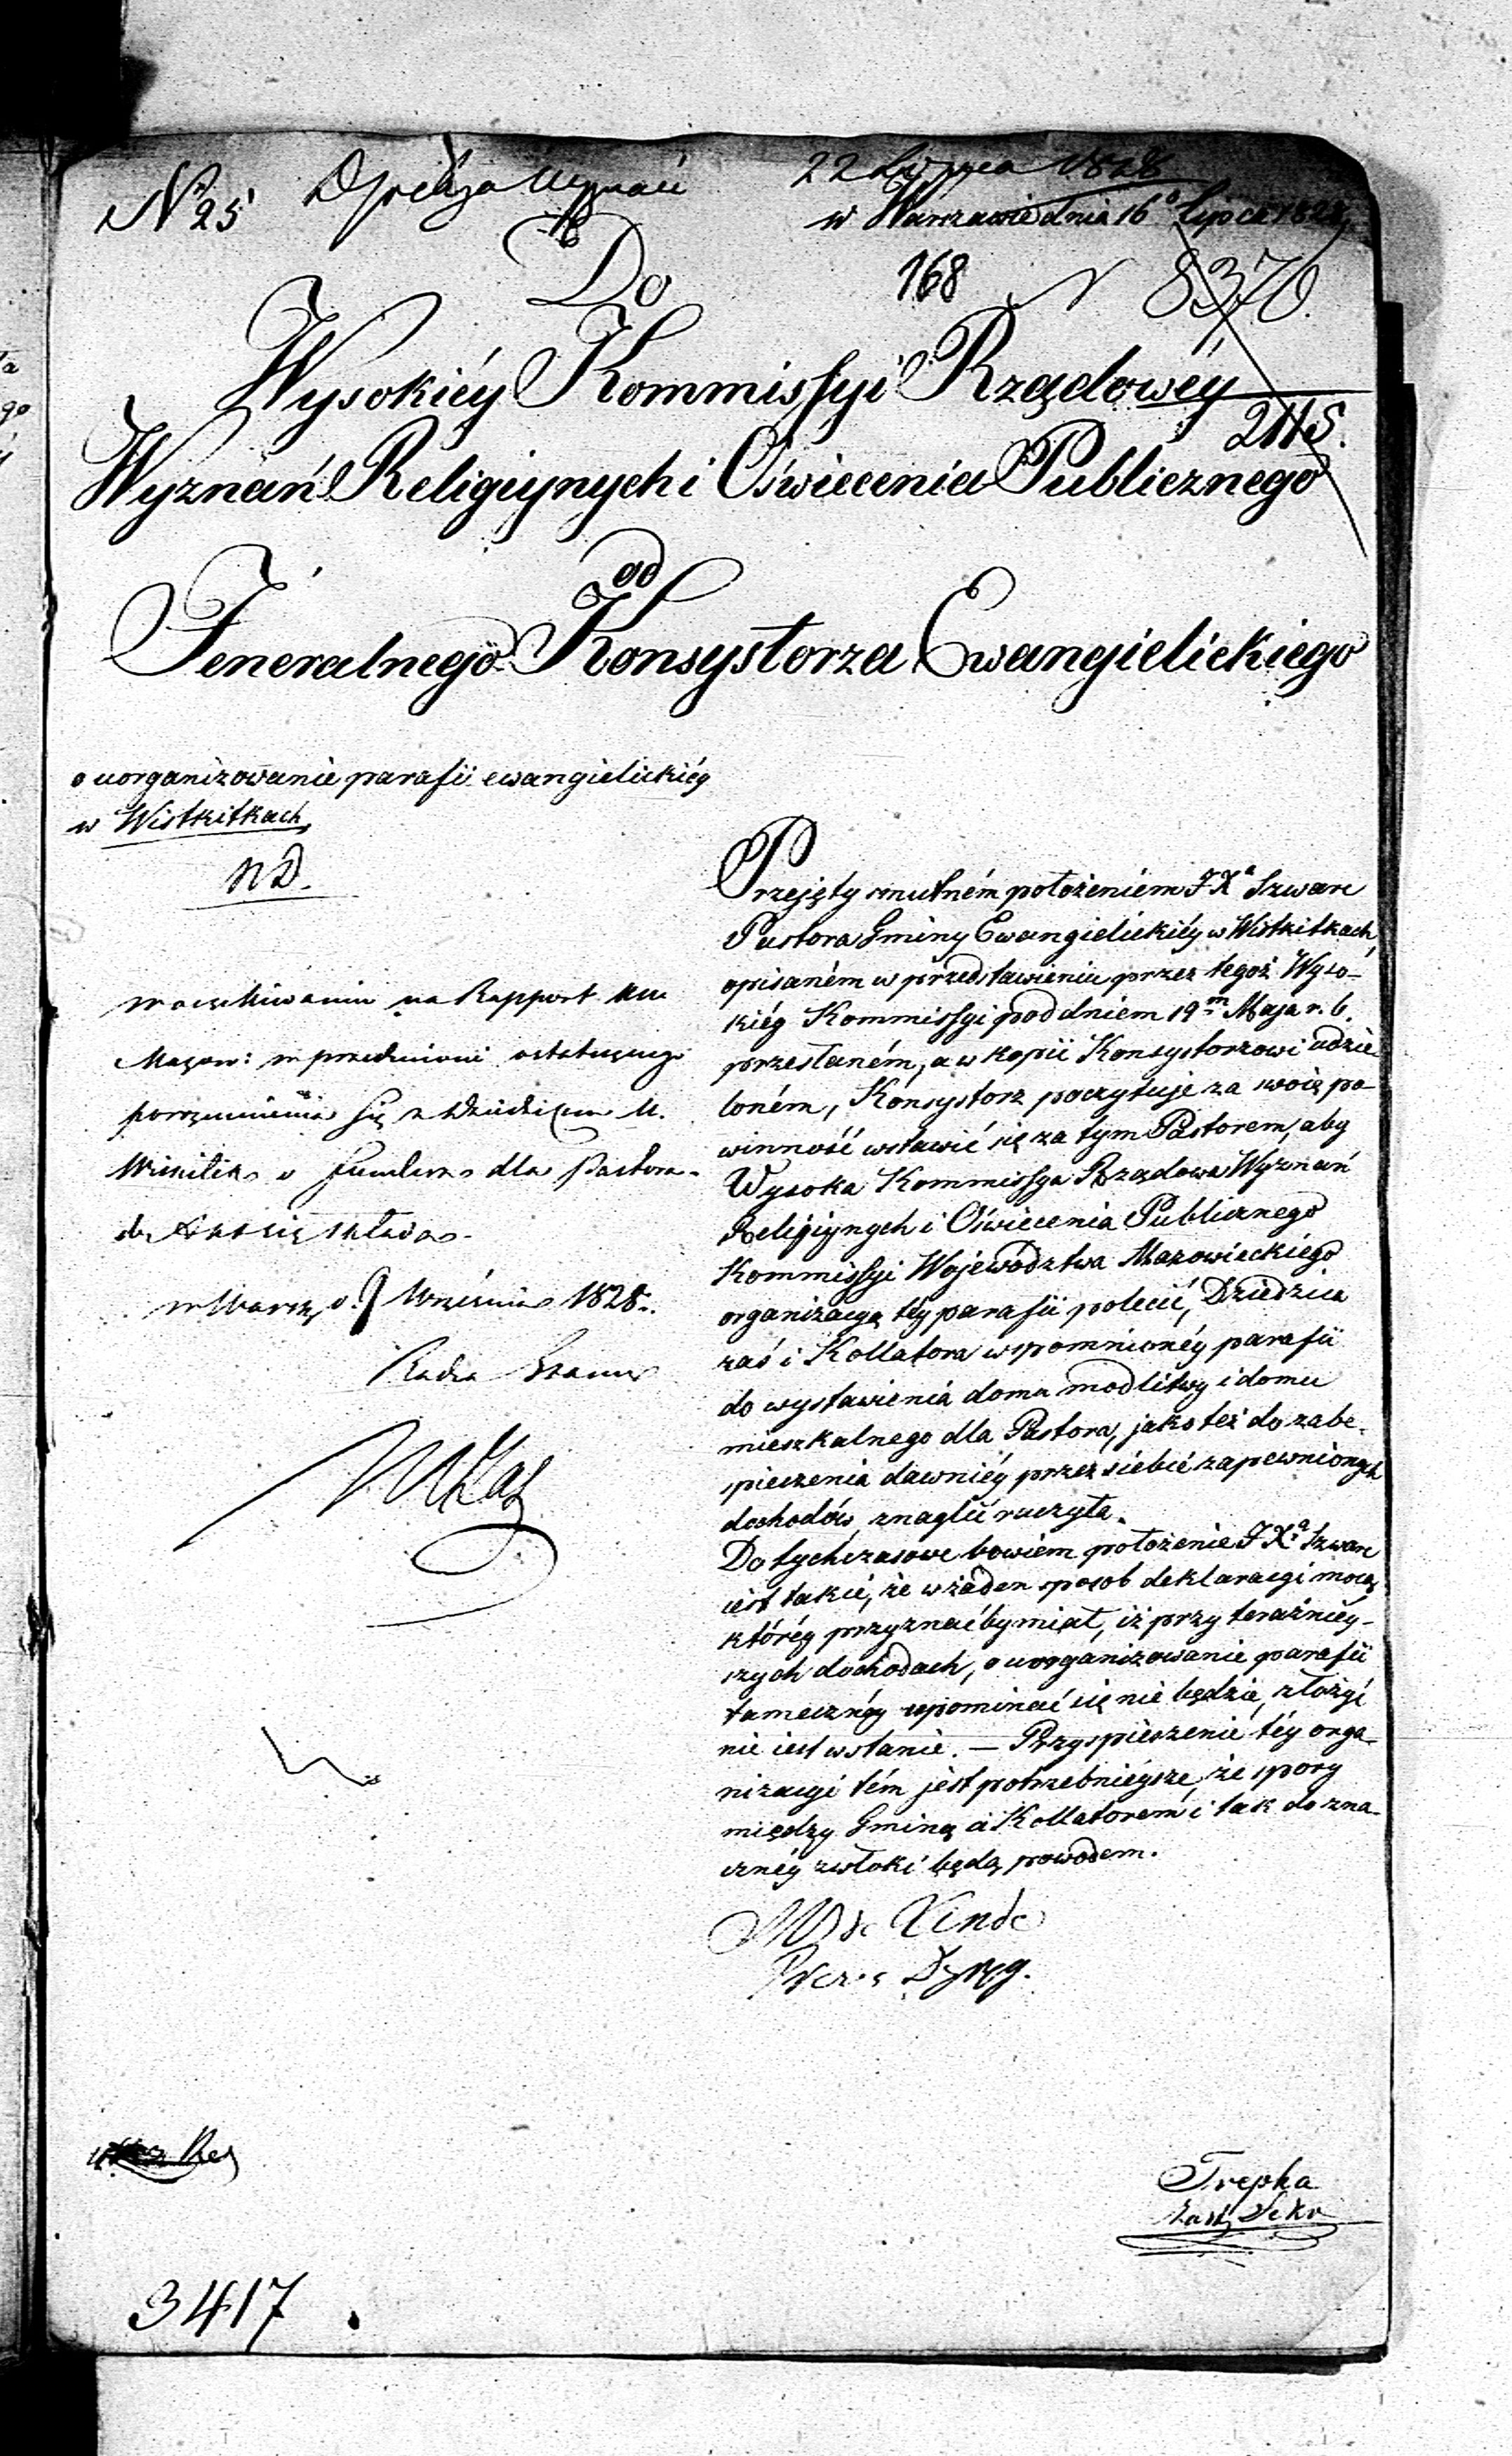 N 25
22 Lipca 1828
w Warszawie dnia 16° Lipca 1828.
Do
168 N 8370.
Wysokiéy Kommissyi Rządowéy
2115.
Wyznań Religiynych i Oświecenia Publicznego
od
Jeneralnego Konsystorza Ewangielickiego
o uorganizowanie parafii ewangielickiéy
w Wistkitkach,
ND.
Przejęty smutném położeniem J Xa Szwarc
Pastora Gminy Ewangielickiéy w Wistkitkach,
opisaném w przedstawieniu przez tegoż Wyso-
kiéy Kommissyi pod dniem 19m Maja r. b.
przesłaném, a w kopii Konsystorzowi udzie-
loném, Konsystorz poczytuje za swoię po-
winność wstawić się za tym Pastorem, aby
Wysoka Kommissya Rządowa Wyznań
Religiynych i Oświecenia Publicznego
Kommissyi Województwa Mazowieckiego
organizacyą téy parafii polecić, Dziedzica
zaś i Kollatora wspomnionéy parafii
do wystawienia domu modlitwy i domu
mieszkalnego dla Pastora, jako też do zabe-
spieczenia dawniéy przez siebie zapewnionych
dochodów znaglić raczyła.
Dotychczasowe bowiem położenie J Xa Szwarc
iest takie, że w żaden sposob deklaracyi mocą
któréy przyznać by miał, iż przy teraźniéy-
szych dochodach, o uorganizowanie parafii
tamecznéy upominać się nie będzie, złożyć
nie iest wstanie. — Przyspieszenie téy orga-
nizacyi tém jest potrzebnieysze, że spory
między Gminą a Kollatorem i tak do zna-
cznéy zwłoki będą powodem.
w oczekiwaniu na Rapport
Mazow: w przedmiocie ostatecznego
porozumienia się z Dziedzicem M.
Wiskitek o fundusz dla Pastora
do Akt się składa.
w Warsz. d. 9 Września 1828.
Radca Stanu
Linde
Prezes Dyryg.
Trepka
Zast. Sekr
3417